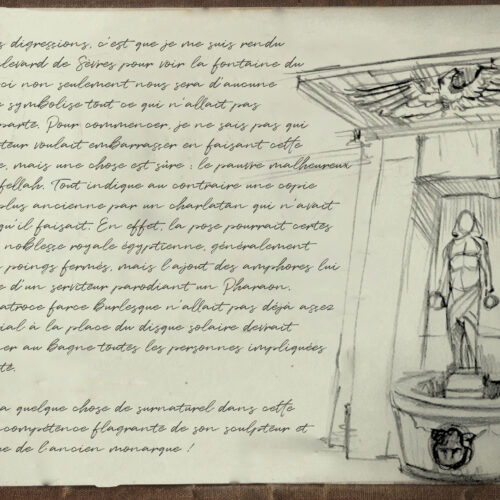 s digressions, c'est que je me suis rendu
ulevard de Sèvres pour voir la fontaine du
ci non seulement nous sera d'aucune
e symbolise tout ce qui n'allait pas
parte. Pour commencer, je ne sais pas qui
teur voulait embarrasser en faisant cette
e, mais une chose est sûre : le pauvre malheureux
fellah. Tout indique au contraire une copie
plus ancienne par un charlatan qui n'avait
qu'il faisait. En effet, la pose pourrait certes
noblesse royale égyptienne, généralement
poings fermés, mais l'ajout des amphores lui
e d'un serviteur parodiant un Pharaon.
atroce farce burlesque n'allait pas déjà assez
ial à la place du disque solaire devrait
er au bagne toutes les personnes impliquées
té.
a quelque chose de surnaturel dans cette
compétence flagrante de son sculpteur et
ue de l'ancien monarque !